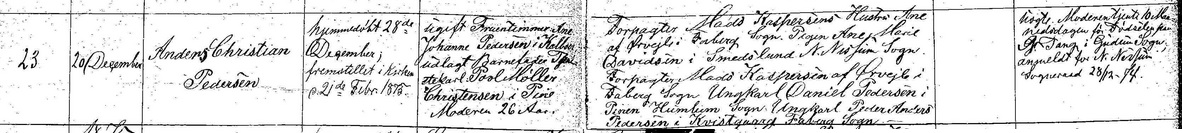 23
20 Decem̄ber
Anders Christian
Pedersen
hjemmedøbt 28de
December;
fremstillet i Kirken
21de Febr. 1875.
ugift Fruentimmer Ane
Johanne Pedersen i
udlagt Barnefader
Poul Møller
Christensen i
Moderen 26 Aar.
Forpagter Mads Kaspersens Hustru Ane
af Ørvejle i Faberg Sogn Pigen Ane Marie
Davidsen i Smedslund N. Nessum Sogn
Forpagter Mads Kaspersen af Ørvejle i
Faberg Sogn Ungkarl Daniel Pedersen i
Humlum Sogn Ungkarl Peder Anders
Pedersen i Kvistgaard Faberg Sogn
Moderen tjente 10 Ma
nedsdagen før Fødselen
Tang i Gudum Sogn,
anmeldt for N. Nessum
Sogneraad 28/12 74.